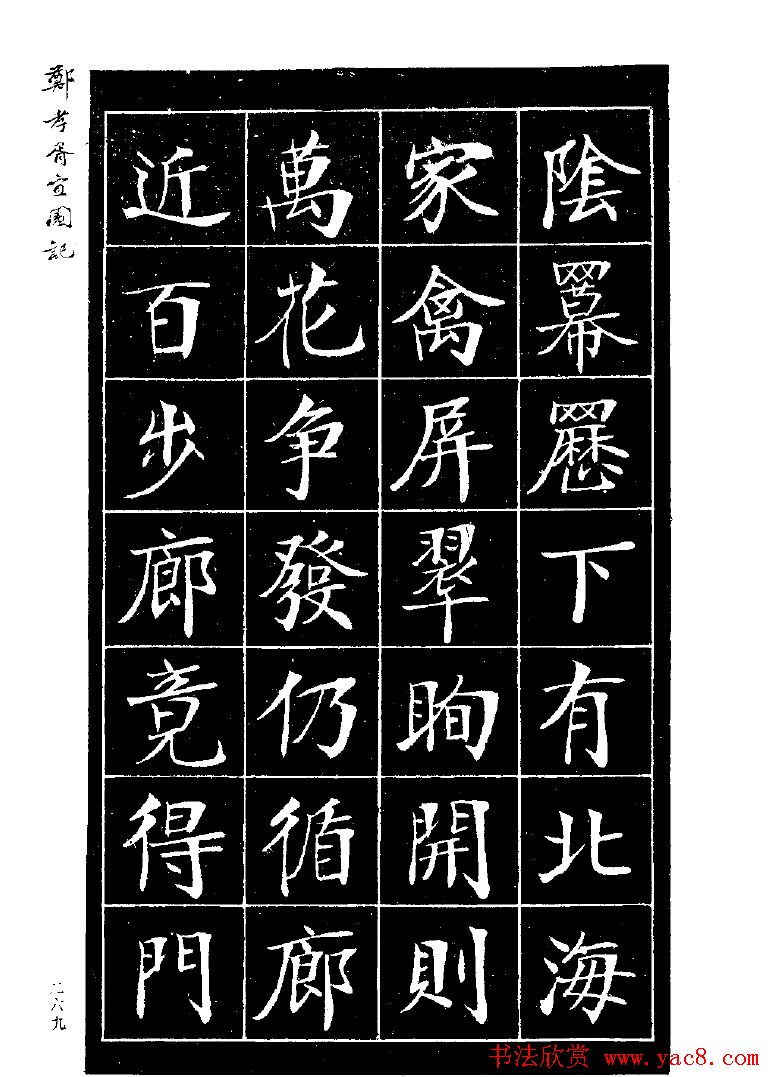 陰羃䍥下有北海
家禽屏翠眴開則
萬花争發仍循廊
近百步廊竟得門
鄭孝胥宜園記
二六九
书法欣赏 www.yac8.com